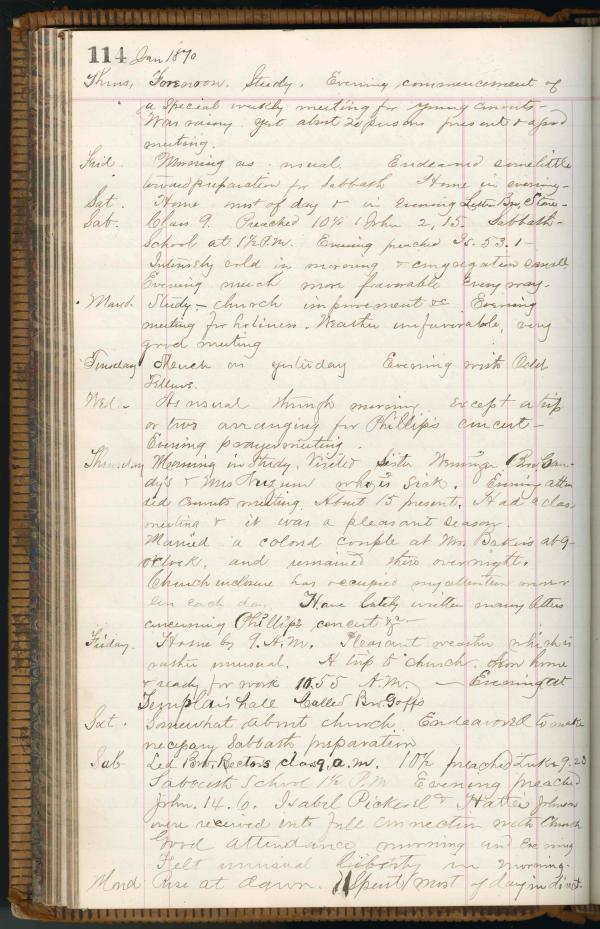 114 Jan 1870
Thurs, Forenoon. Study. Evening commencement of
a special weekly meeting for young converts-
Was rainy yet about 20 persons present & a good
meeting.
Frid. Morning as usual Endeavored some little
toward preparation for Sabbath Home in evening-
Sat. Home most of day & in evening Bro, Store-
Sab. Class 9. Preached 10½ 1 John 2, 15. Sabbath-
School at 1½ P.M. Evening preached Is. 53. 1-
Intensely cold in morning & congregation small.
Evening much more favorable every way-
Mond. Study - church improvement &c Evening
meeting for holiness. Weather unfavorable, very
good meeting
Tuesday Much as yesterday Evening with Odd
Fellows.
Wed.- As usual through morning except a trip
or two arranging for Phillip's concert-
Evening prayermeeting.
Thursday Morning in Study, Visited Sister Bro
& Mrs who is sick. Evening atten
ded converts meeting. About 15 present. Had a class
meeting & it was a pleasant season.
Married a colord couple at Mr. Bakers at 9-
oclock. and remained there overnight.
Church enclosure has occupied my attention more or
less each day. Have lately written many letters
concerning Phillips concert &c-
Friday. Home by 9. A.M. Pleasant weather which is
rather unusual. A trip to church. home
& ready for work 10.55 A.M. - Evening at
Templars hall Called Bro. Goffs
Sat. Somewhat about church Endeavored to make
necessary Sabbath preparation
Sab Led Bro. Rectors class 9, a.m. 10½ preached Luke 9. 23
Sabbath School 1½ P.M Evening preached
John. 14. 6. Isabel & Hattie Johnson
were received into full connection with Church
Good attendance morning and Evening
Felt unusual liberty in morning.
Mond Rise at dawn. Spent most of day in